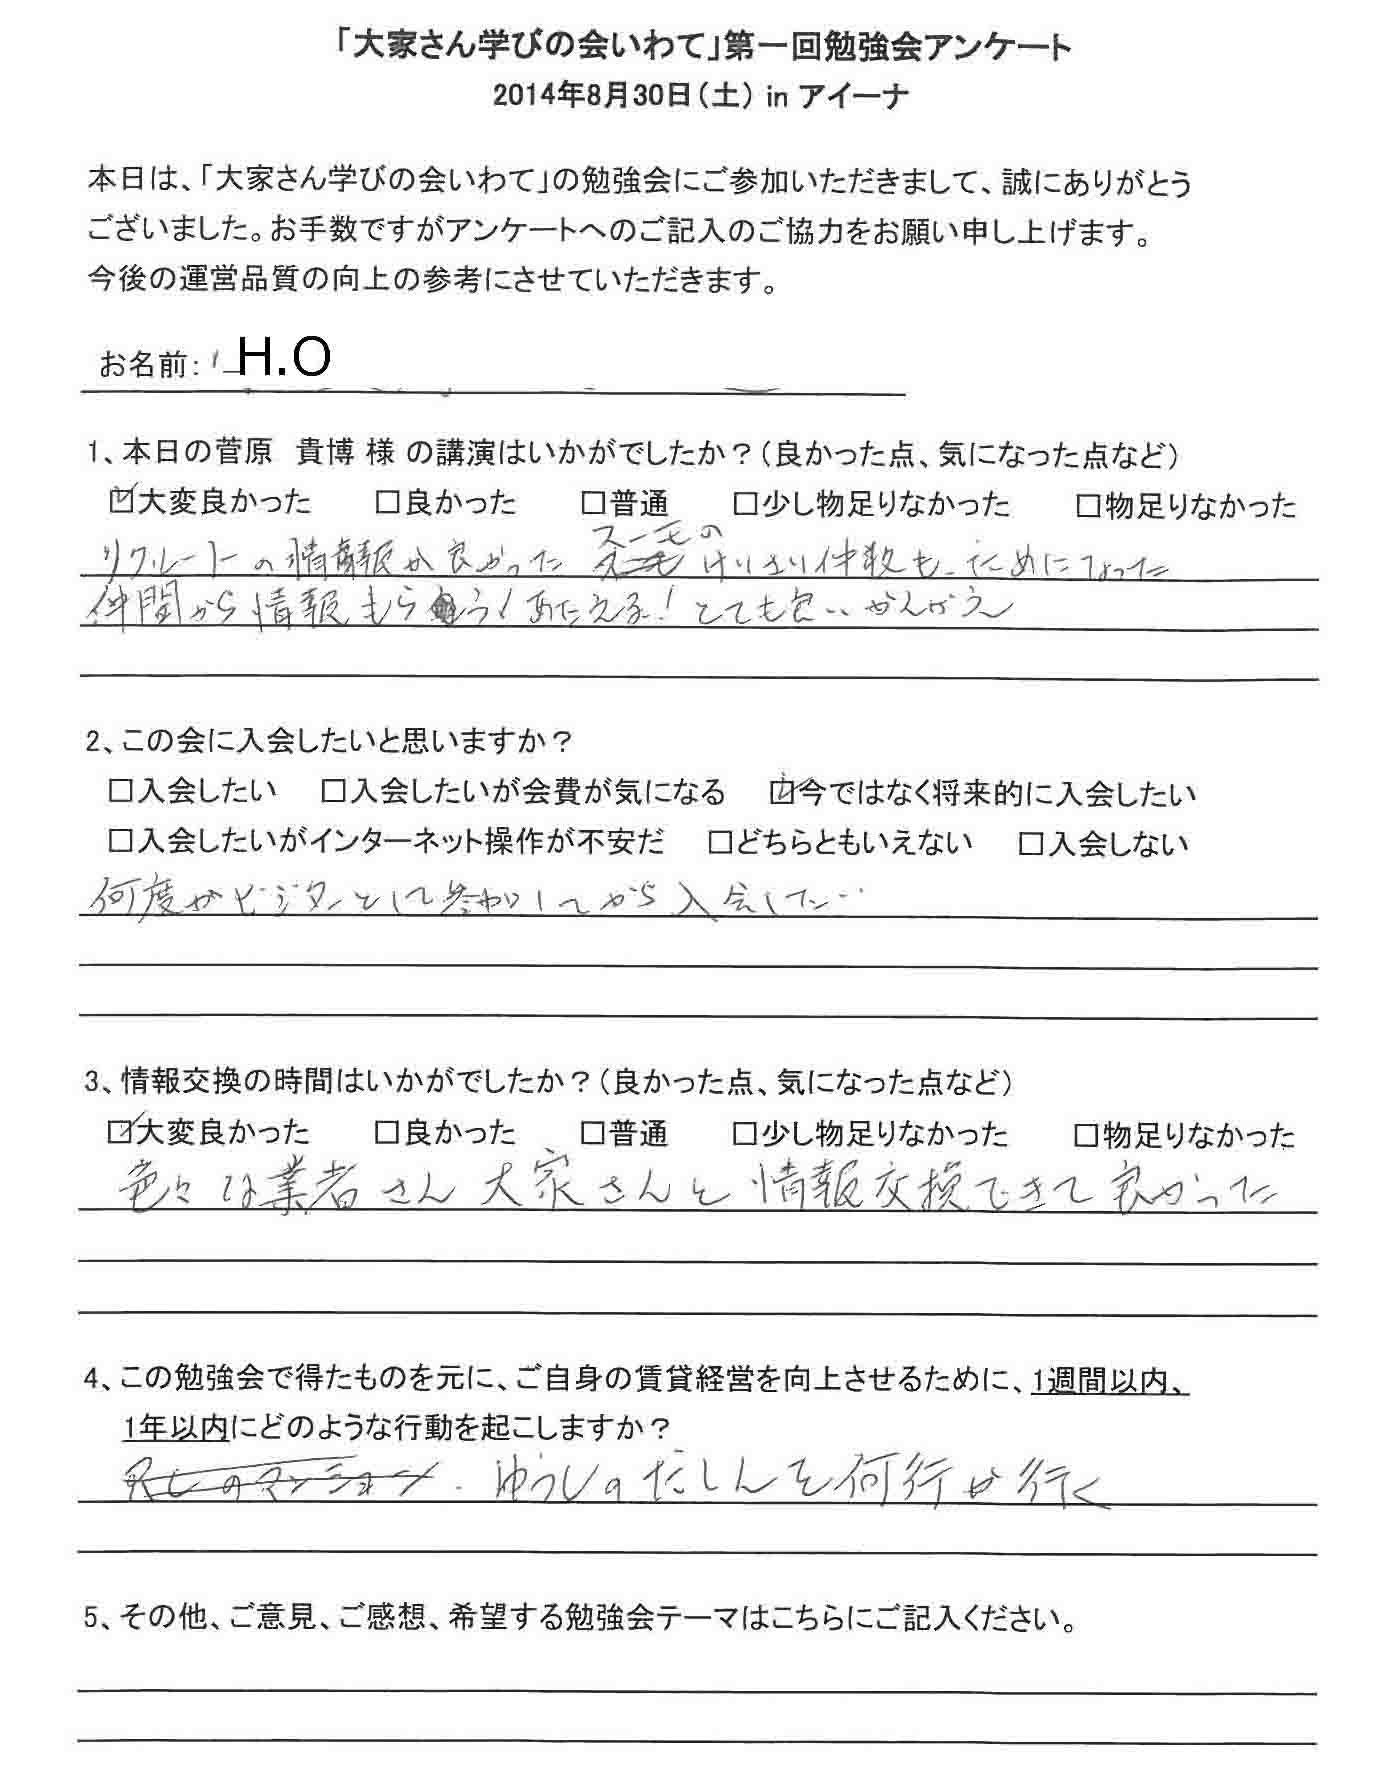 「大家さん学びの会いわて」第一回勉強会アンケート
2014年8月30日（土） in アイーナ
本日は、「大家さん学びの会いわて」の勉強会にご参加いただきまして、誠にありがとう
ございました。お手数ですがアンケートへのご記入のご協力をお願い申し上げます。
今後の運営品質の向上の参考にさせていただきます。
お名前： H.O
1、本日の菅原　貴博 様 の講演はいかがでしたか？（良かった点、気になった点など）
☑大変良かった □良かった □普通 □少し物足りなかった □物足りなかった
スーモの
リクルートの情報が良かった けいさい件数も、ためになった
仲間から情報もらう！あたえる！とても良いかんがえ
2、この会に入会したいと思いますか？
□入会したい □入会したいが会費が気になる ☑今ではなく将来的に入会したい
□入会したいがインターネット操作が不安だ □どちらともいえない □入会しない
何度かビジターとして参加してから入会したい
3、情報交換の時間はいかがでしたか？（良かった点、気になった点など）
☑大変良かった □良かった □普通 □少し物足りなかった □物足りなかった
色々な業者さん大家さんと情報交換できて良かった
4、この勉強会で得たものを元に、ご自身の賃貸経営を向上させるために、1週間以内、
1年以内にどのような行動を起こしますか？
のマンション．ゆうしのだしんを何行か行く
5、その他、ご意見、ご感想、希望する勉強会テーマはこちらにご記入ください。